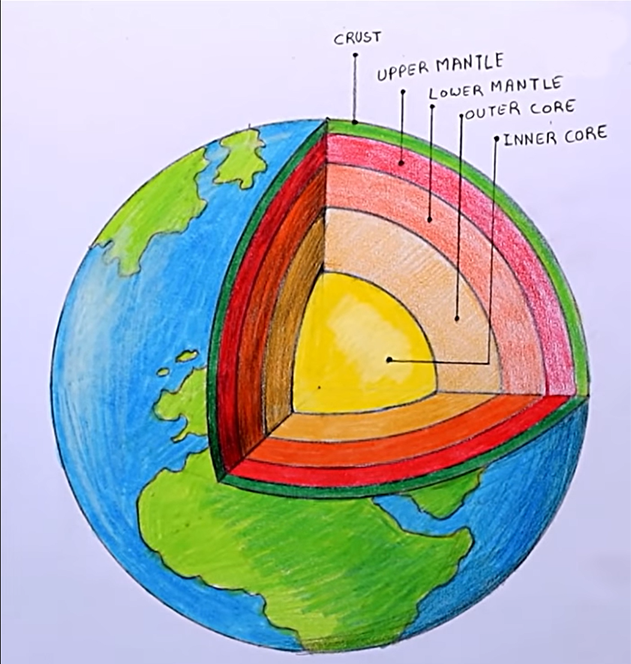 CRUST
UPPER MANTLE
LOWER MANTLE
OUTER CORE
INNER CORE